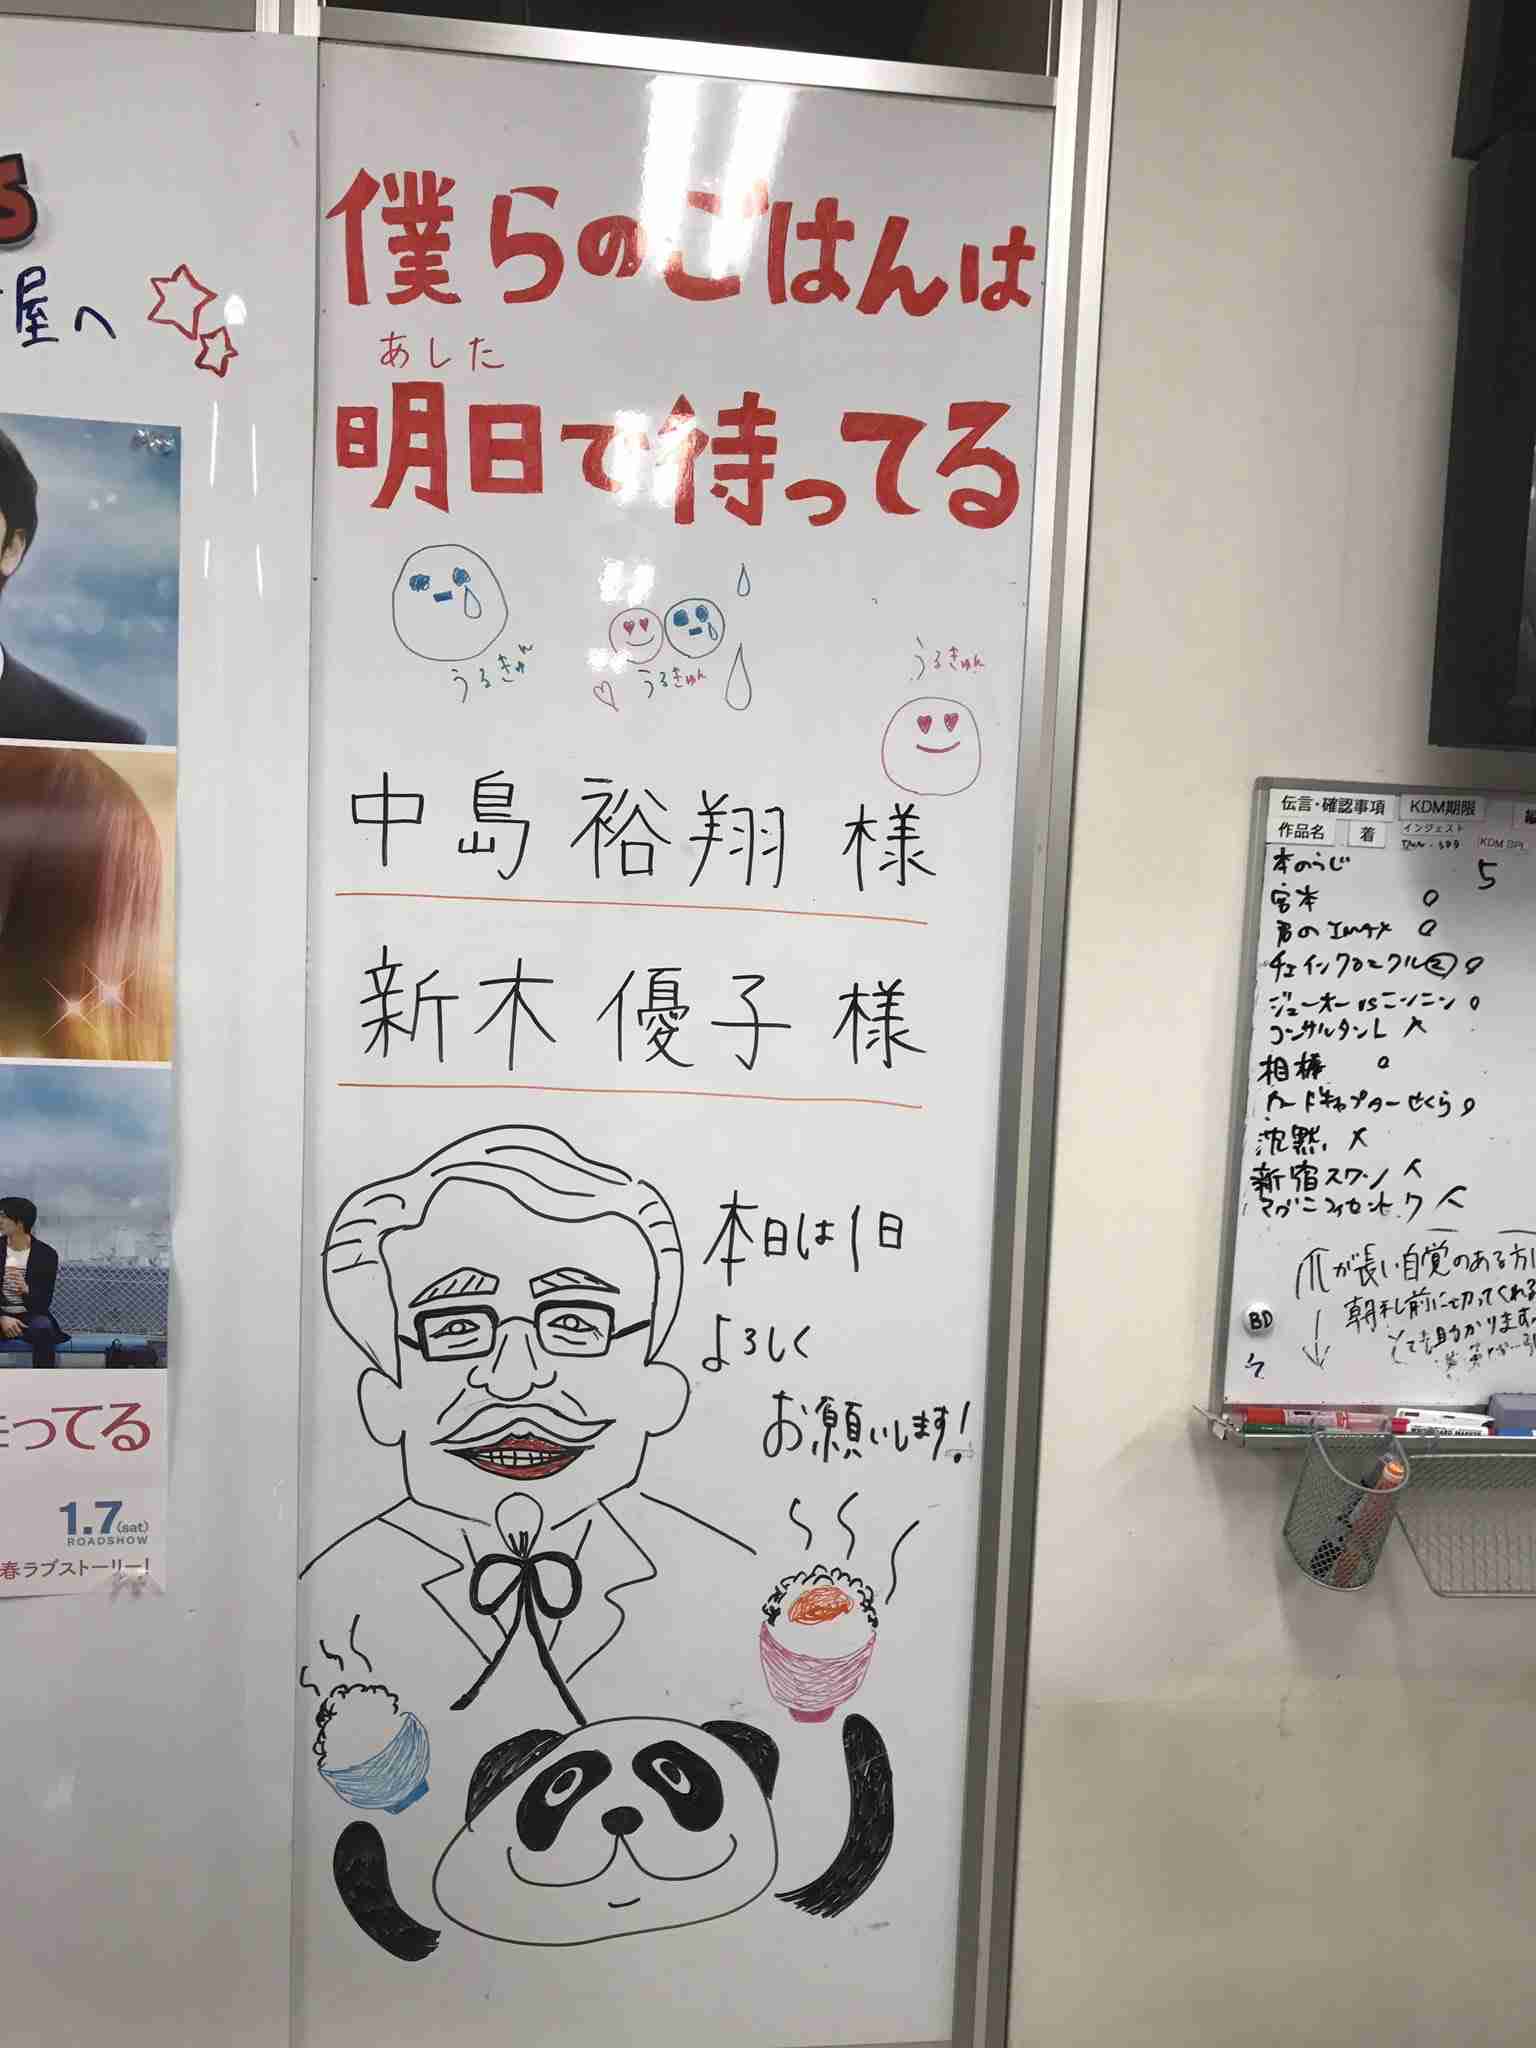 屋へ
僕らのごはんは
あした
明日で待ってる
うるきゅん
うるきゅん
うるきゅん
中島 裕翔 様
新木 優子 様
本日は1日
よろしく
お願いします!
ってる
1.7(sat)
ROADSHOW
春ラブストーリー!
伝言・確認事項 KDM期限
作品名 着 インジェスト
本のうじ 5
宮本
君の IMAX
チェインクロニクル②
ジュウオーvsニンニン
コンサルタント
相棒
カードキャプターさくら
沈黙
新宿スワン
マグニフィセント 7
爪が長い自覚のある方
朝礼前に切ってくれる
とても助かります
BD